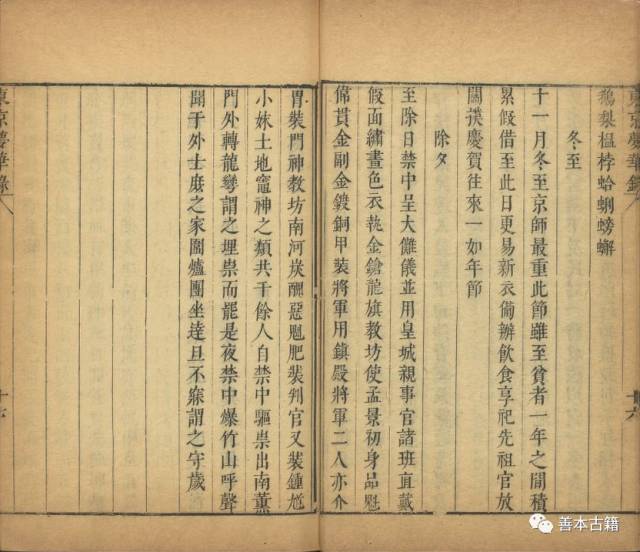 鵝梨榲桲蛤蜊螃蠏
冬至
十一月冬至京師最重此節雖至貧者一年之間積
累假借至此日更易新衣俻辦飲食享祀先祖官放
關撲慶賀往來一如年節
除夕
至除日禁中呈大儺儀並用皇城親事官諸班直戴
假面繡畫色衣執金鎗龍旗教坊使孟景初身品魁
偉貫金副金鍍銅甲裝將軍用鎮殿將軍二人亦介
胄裝門神教坊南河炭醜惡魁肥裝判官又裝鍾馗
小妹土地竈神之類共千餘人自禁中驅祟出南薰
門外轉龍彎謂之埋祟而罷是夜禁中爆竹山呼聲
聞于外士庶之家圍爐團坐達旦不寐謂之守歲
東京夢華錄
十六
東京夢華錄
十六
善本古籍